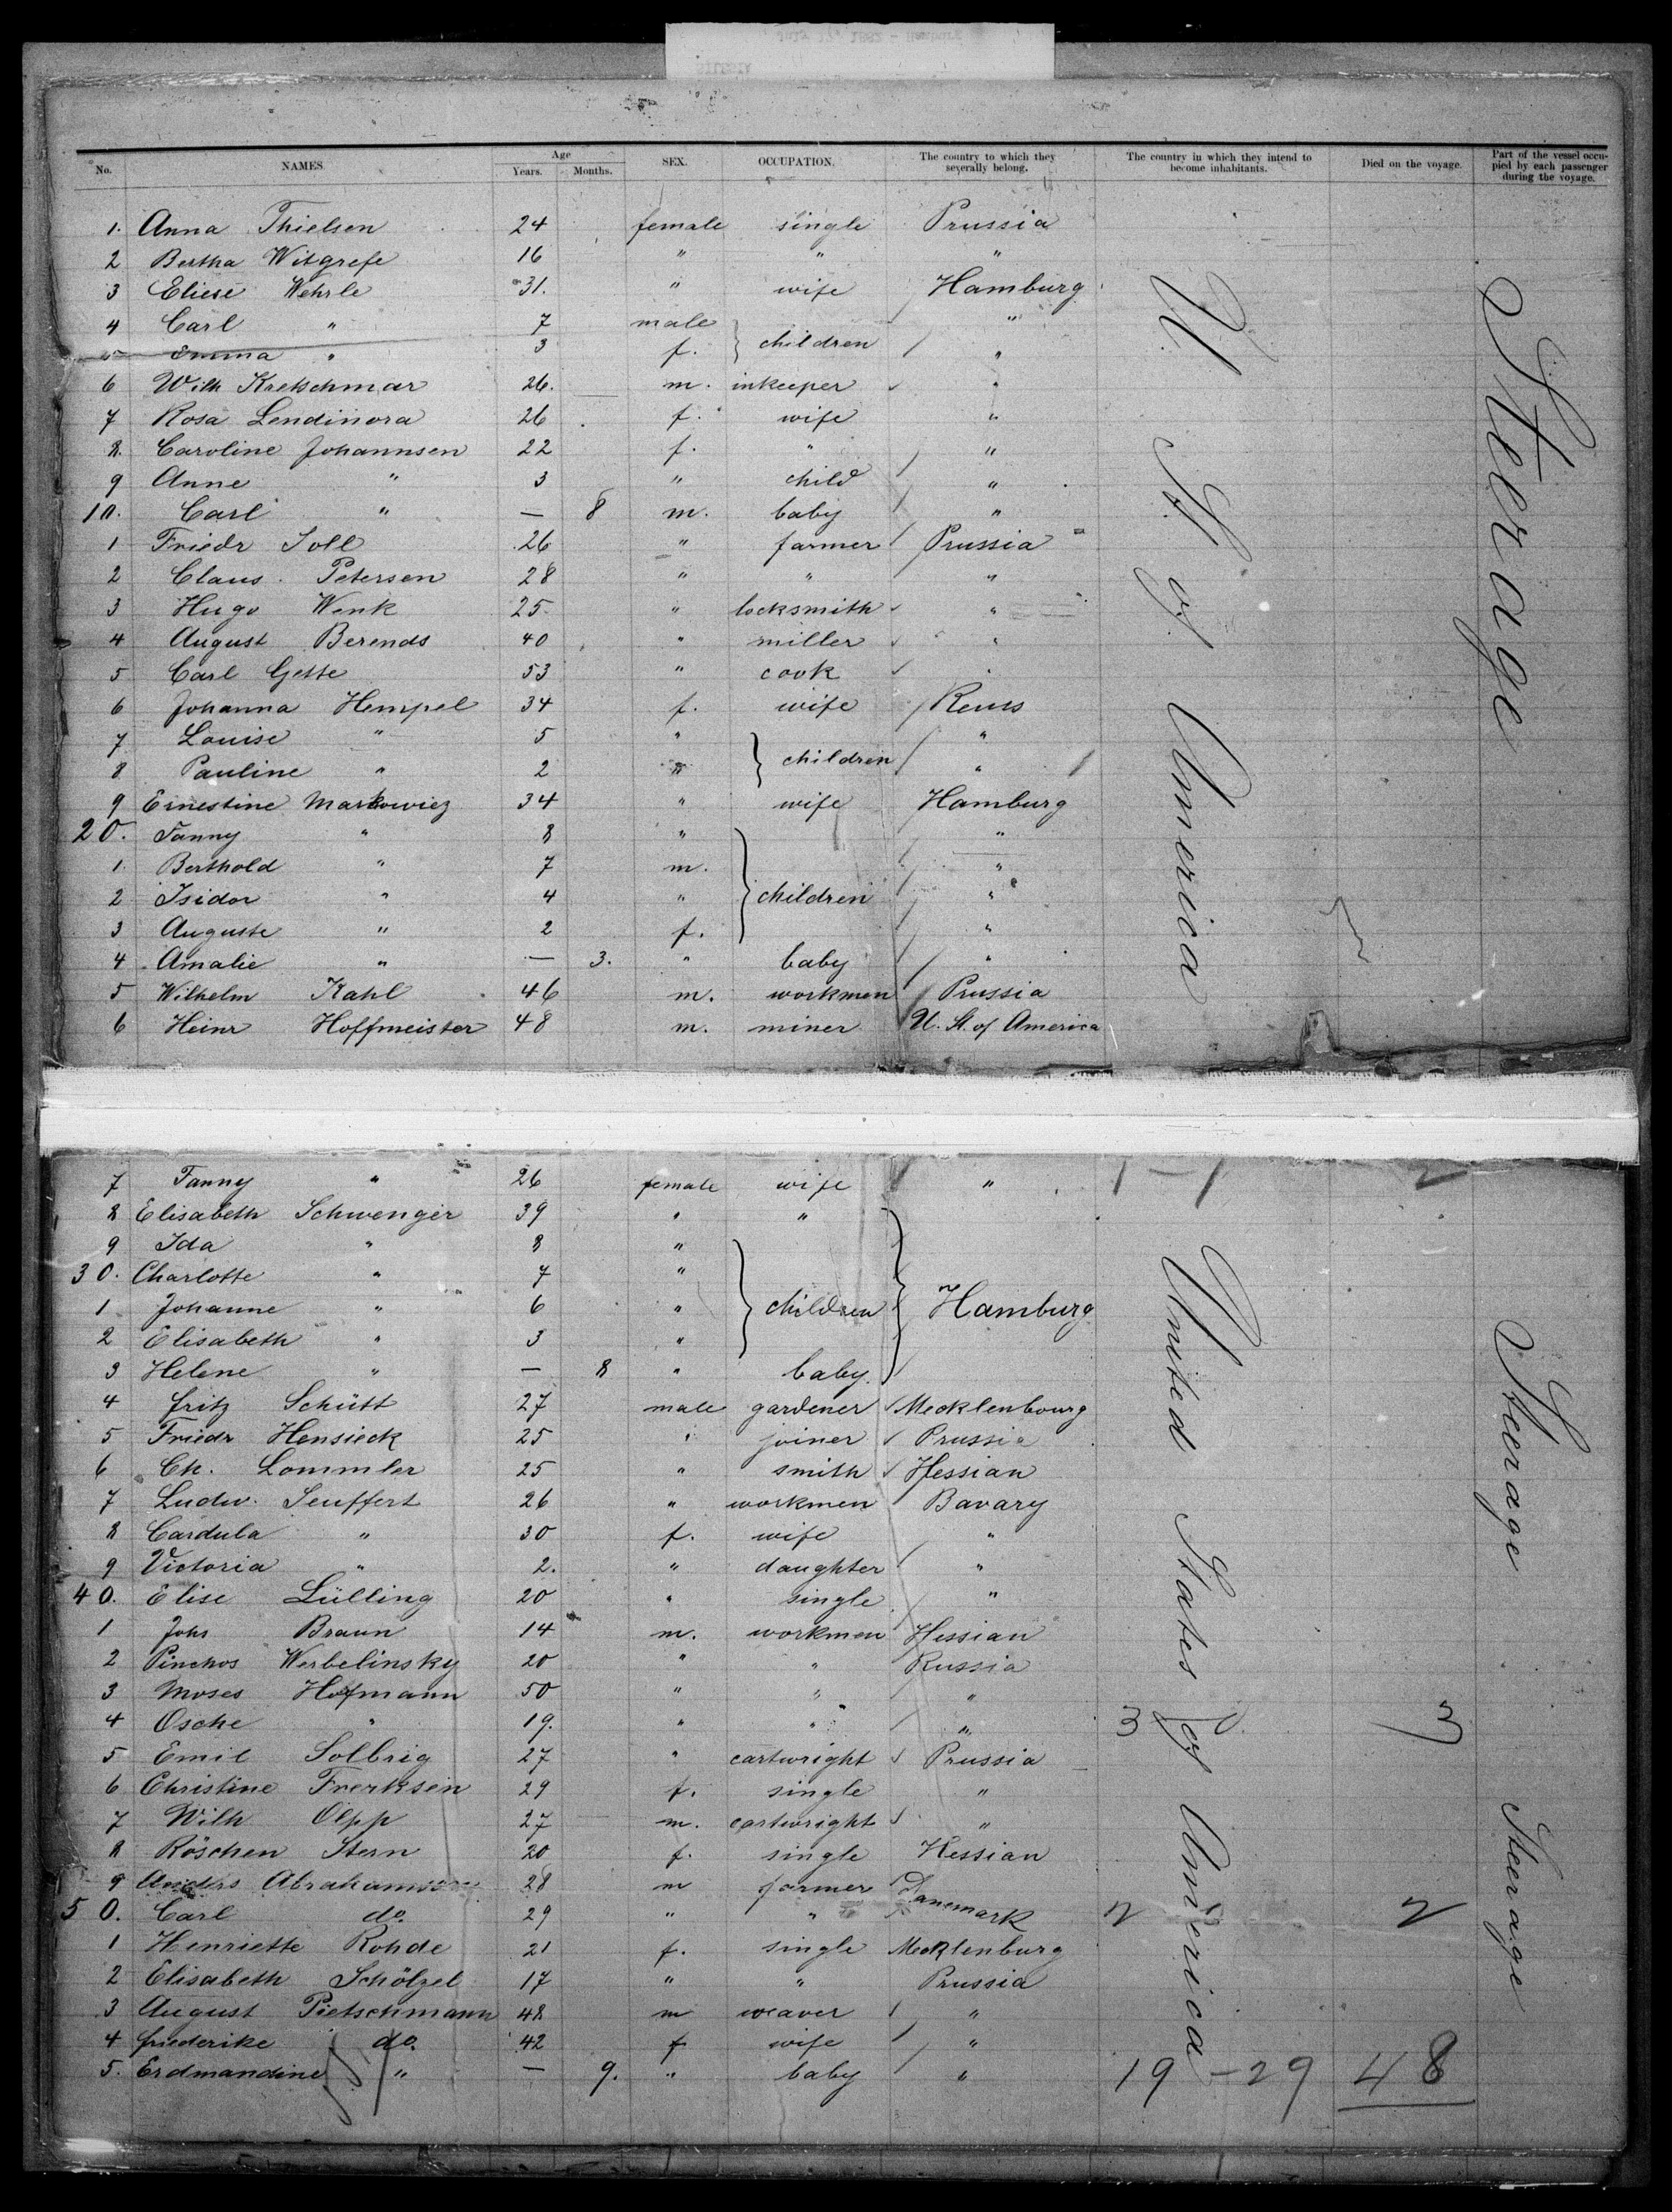 No. NAMES. Age Years. Months. SEX. OCCUPATION. The country to which they severally belong. The country in which they intend to become inhabitants. Died on the voyage. Part of the vessel occupied by each passenger during the voyage.
1. Anna Thielsen 24 female single Prussia
2 Bertha Witgrefe 16 " " "
3 Eliese Wehrle 31. " wife Hamburg
4 Carl " 7 male children "
5 Emma " 3 f. "
6 Wilh Kretschmar 26. m. inkeeper "
7 Rosa Lendinora 26 f. wife "
8. Caroline Johannsen 22 f. " "
9 Anne " 3 " child "
10. Carl " — 8 m. baby "
1 Friedr Soll 26 " farmer Prussia
2 Claus Petersen 28 " " "
3 Hugo Wenk 25. " locksmith "
4 August Berends 40 " miller "
5 Carl Gette 53 " cook "
6 Johanna Hempel 34 f. wife Reuss
7 Louise " 5 " children "
8 Pauline " 2 " "
9 Ernestine Markowicz 34 " wife Hamburg
20. Fanny " 8 " "
1. Berthold " 7 m. "
2 Isidor " 4 " children "
3 Auguste " 2 f. "
4 Amalie " — 3. " baby "
5 Wilhelm Kahl 46 m. workmen Prussia
6 Heinr Hoffmeister 48 m. miner U. St. of America
U. St. of America
Steerage
7 Fanny " 26 female wife " 1 - 1 2
8 Elisabeth Schwenger 39 " "
9 Ida " 8 "
30. Charlotte " 7 "
1 Johanne " 6 " children Hamburg
2 Elisabeth " 3 "
3 Helene " — 8 " baby.
4 Fritz Schütt 27 male gardener Mecklenbourg
5 Friedr Hensieck 25 " joiner Prussia
6 Ch. Lommler 25 " smith Hessian
7 Ludw. Seuffert 26 " workmen Bavary
8 Cardula " 30 f. wife "
9 Victoria " 2. " daughter "
40. Elise Lülling 20 " single "
1 Johs Braun 14 m. workmen Hessian
2 Pinchos Werbelinsky 20 " " Russia
3 Moses Hofmann 50 " " "
4 Osche " 19. " " " 3 0 3
5 Emil Solbrig 27 " cartwright Prussia
6 Christine Frerksen 29 f. single "
7 Wilh Olpp 27 m. cartwright "
8 Röschen Stern 20 f. single Hessian
9 Anders 28 m farmer Danemark
50. Carl do. 29 " " 2 2
1 Henriette Rohde 21 f. single Mecklenburg
2 Elisabeth Schölzel 17 " " Prussia
3 August Pietschmann 48 m weaver "
4 friederike do. 42 f wife "
5. Erdmandine " — 9. " baby " 19 - 29 48
United States of America
Steerage
Steerage